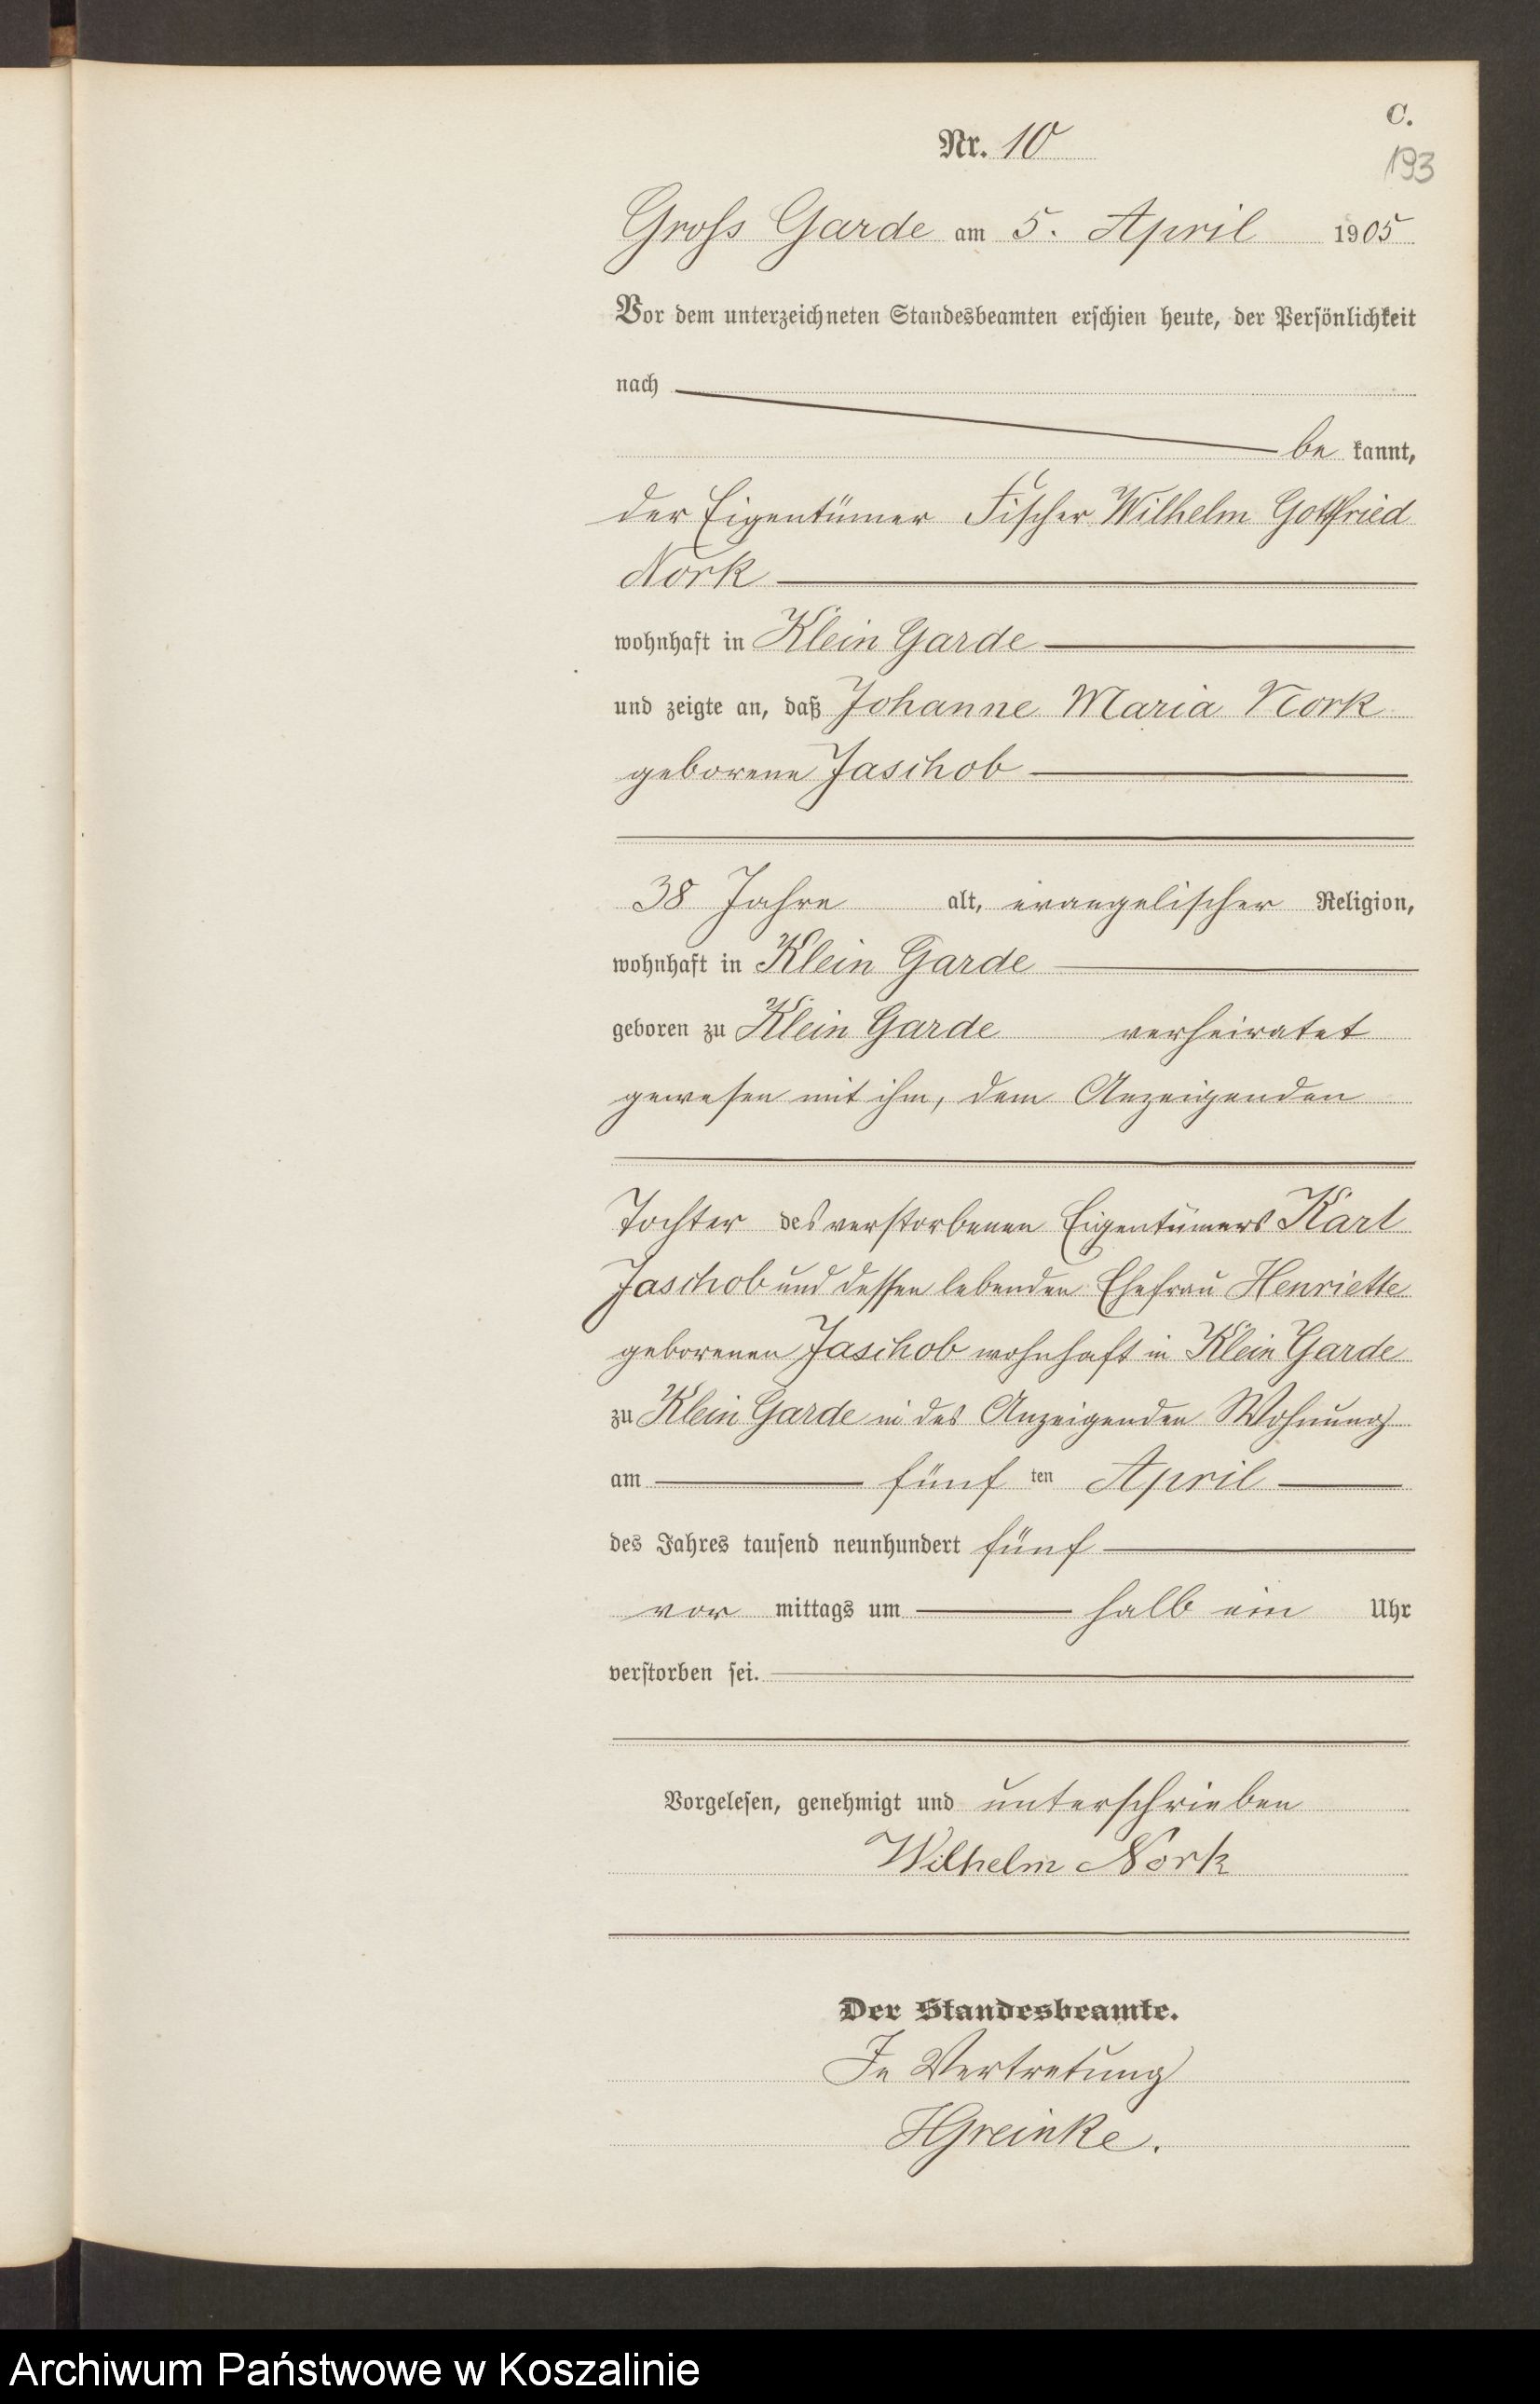 C.
Nr. 10
193
Gross Garde am 5. April 1905
Vor dem unterzeichneten Standesbeamten erschien heute, der Persönlichkeit
nach
be kannt,
der Eigentümer Fischer Wilhelm Gottfried
Nork
wohnhaft in Klein Garde
und zeigte an, daß Johanne Maria Nork
geborene Jaschob
38 Jahre alt, evangelischer Religion,
wohnhaft in Klein Garde
geboren zu Klein Garde verheiratet
gewesen mit ihm, dem Anzeigenden
Tochter des verstorbenen Eigentümers Karl
Jaschob und dessen lebenden Ehefrau Henriette
geborenen Jaschob wohnhaft in Klein Garde
zu Klein Garde in des Anzeigenden Wohnung
am fünf ten April
des Jahres tausend neunhundert fünf
vor mittags um halb ein Uhr
verstorben sei.
Vorgelesen, genehmigt und unterschrieben
Wilhelm Nork
Der Standesbeamte.
In Vertretung
HGreinke.
Archiwum Państwowe w Koszalinie